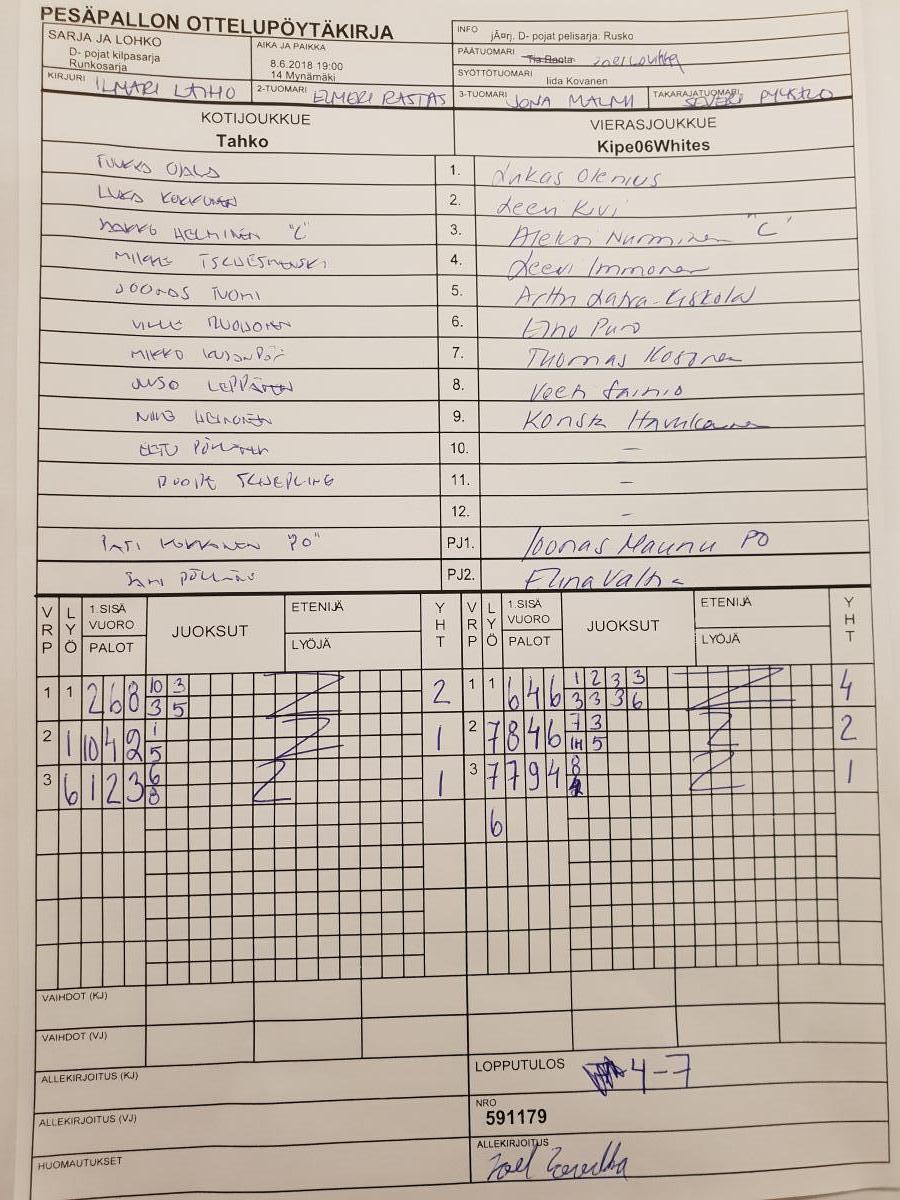 PESÄPALLON OTTELUPÖYTÄKIRJA
SARJA JA LOHKO
D- pojat kilpasarja
Runkosarja
AIKA JA PAIKKA
8.6.2018 19:00
14 Mynämäki
INFO jÃ¤rj. D- pojat pelisarja: Rusko
PÄÄTUOMARI
SYÖTTÖTUOMARI Iida Kovanen
KIRJURI ILMARI LAIHO
2-TUOMARI ELMERI RASTAS
3-TUOMARI JONA MALMI
TAKARAJATUOMARI SEVERI
KOTIJOUKKUE
Tahko
VIERASJOUKKUE
Kipe06Whites
TUUKKA OJALA 1. Lukas Olenius
LUKA KOKKONEN 2. Leevi Kivi
HELMINEN "C" 3. Aleksi Nurminen "C"
4. Leevi Immonen
JOONAS TUOMI 5. Arttu
VILLE 6. Eino Puro
MIKKO 7. Thomas Kosonen
JUSO LEPPÄNEN 8. Veeti Sainio
HEINONEN 9. Konsta
EETU 10. –
ROOPE 11. –
12. –
"PO" PJ1. Joonas Maunu PO
PJ2. Elina
VRP LYÖ 1.SISÄ VUORO PALOT JUOKSUT ETENIJÄ LYÖJÄ YHT VRP LYÖ 1.SISÄ VUORO PALOT JUOKSUT ETENIJÄ LYÖJÄ YHT
1 1 2 6 8 10 3 2 1 1 6 4 6 1 2 3 3 4
3 5 3 3 3 6
2 1 10 4 2 1 1 2 7 8 4 6 7 3 2
5 14 5
3 6 1 2 3 6 1 3 7 7 9 4 8 1
8
6
VAIHDOT (KJ)
VAIHDOT (VJ)
ALLEKIRJOITUS (KJ)
LOPPUTULOS 4-7
ALLEKIRJOITUS (VJ)
NRO
591179
HUOMAUTUKSET
ALLEKIRJOITUS
Joel